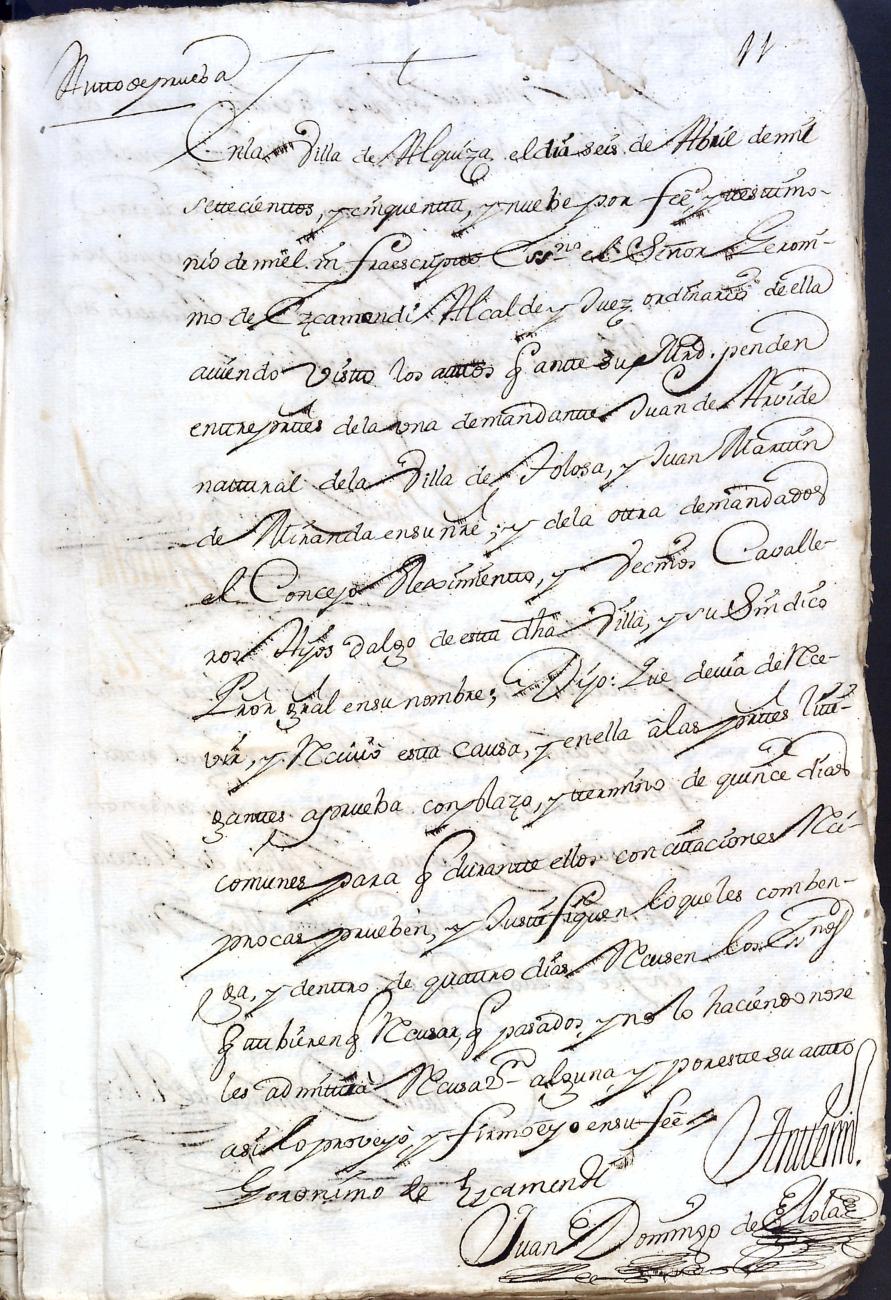 Autto de prueba
11
En la Villa de Alquiza el dia seis de Abril de mil
settecienttos, y cinquentta, y nuebe por fee, y testtimo-
nio de mi el infraescriptto Essno el Señor Geroni-
mo de Ezcamendi Alcalde y Juez ordinario de ella
auiendo visto los auttos q antte su Mrd. penden
enttre prttes de la vna demandantte Juan de Aruide
natural de la Villa de Tolosa, y Juan Martin
de Miranda en su nre; y de la ottra demandados
el Concejo Reximientto, y Vecinos Cavalle-
ros Hijos dalgo de estta dha Villa, y su Sindico
Prōr gral en su nombre; Dijo: Que deuia de Rce-
vir, y Rciuio estta causa, y en ella a las parttes litti-
ganttes a prueba con plazo, y ttermino de quince dias
comunes para q durantte ellos con cittaciones Rci-
procas prueben, y Justtifiquen lo que les comben-
ga, y denttro de quattro dias Rcusen los Essnos
q ttubieren q Rcusar, q pasados, y no lo haciendo no se
les admittirà Rcusaon alguna, y por estte su autto
asi lo proveyò, y firmo e yo en su fee
Geronimo de Ezcamendi
Antte mi.
Juan Domingo de Elola